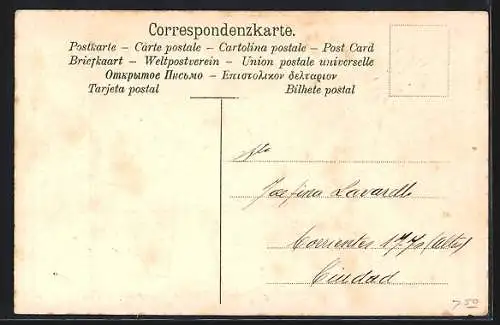 Correspondenzkarte.
Postkarte – Carte postale – Cartolina postale – Post Card
Briefkaart – Weltpostverein – Union postale universelle
Открытое Письмо – Επιστολικον δελταριον
Tarjeta postal Bilhete postal
Josefina Lavarello
Corrientes 1770 (altos)
Ciudad
750